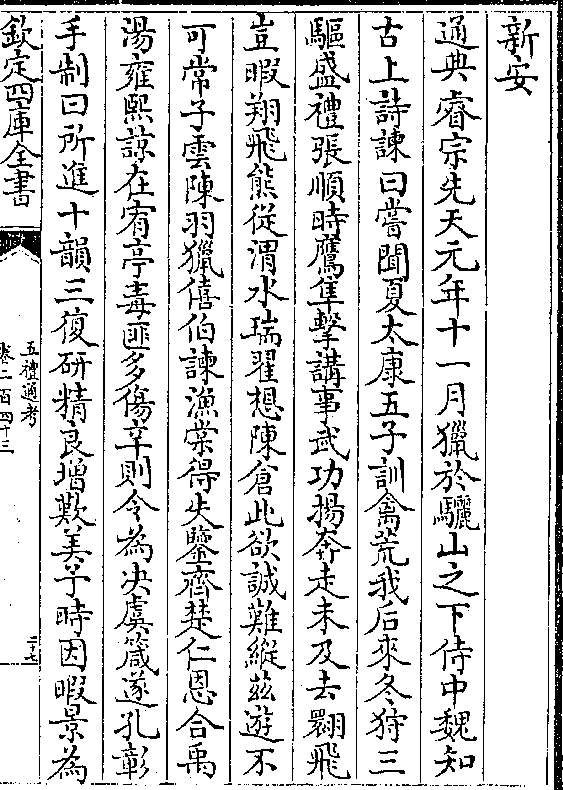 新安
通典睿宗先天元年十一月獵於驪山之下侍中魏知
古上詩諫曰嘗聞夏太康五子訓禽荒我后來冬狩三
驅盛禮張順時鷹隼擊講事武功揚奔走未及去翾飛
豈暇翔飛熊從渭水瑞翟想陳倉此欲誠難縱兹遊不
可常子雲陳羽獵僖伯諫漁棠得失鑒齊楚仁恩合禹
湯雍熙諒在宥亭毒匪多傷辛則令為決虞箴遂孔彰
手制曰所進十韻三復研精良增歎美予時因暇景為
欽定四庫全書
五禮通考
卷二百四十三
二十七